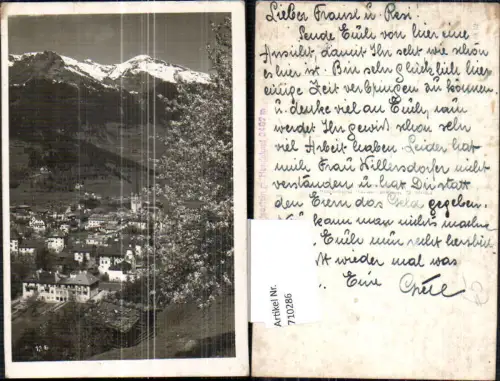 Lieber Franzl u. Resi.
Sende Euch von hier eine
Ansicht, damit Ihr seht wie schön
es hier ist. Bin sehr glücklich hier
einige Zeit verbringen zu können.
u. denke viel an Euch, nun
werdet Ihr gewiß schon sehr
viel Arbeit haben. Leider hat
mich Frau Willersdorfer nicht
verstanden u. hat Dir statt
den Eiern das Geld gegeben.
kann man nichts machen
Euch nun recht herzlich
wieder mal was
Eure Gretl
Artikel Nr.
710286
13 6